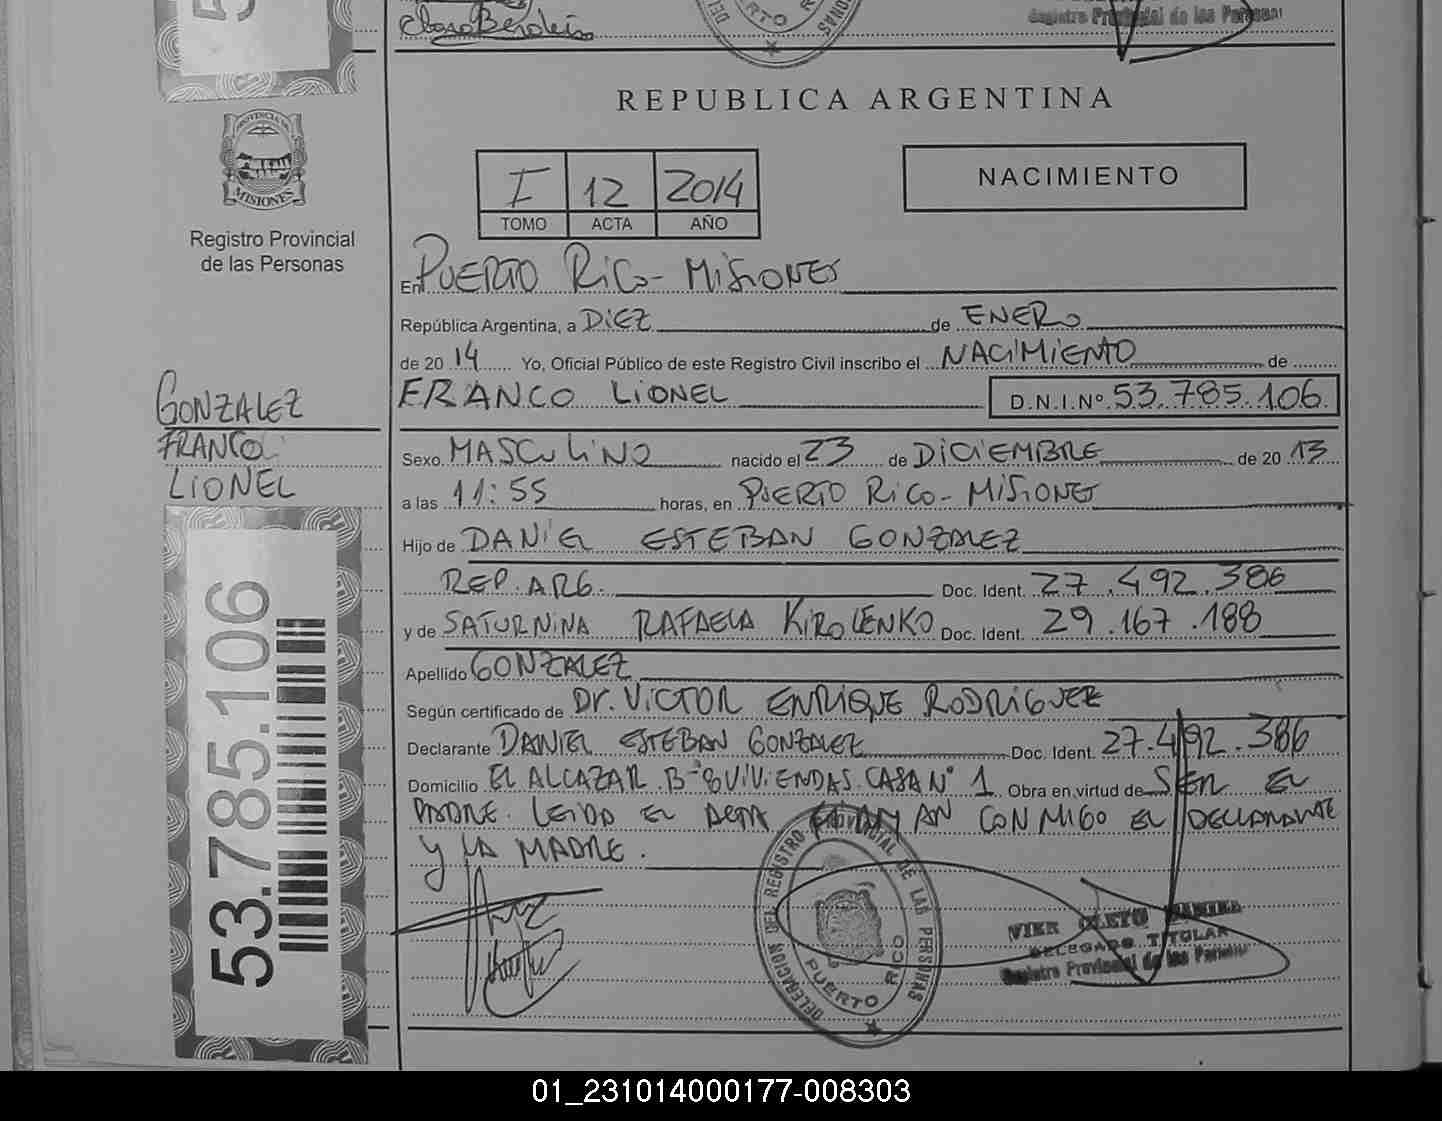 Registro Provincial de las Personas
REPUBLICA ARGENTINA
PROVINCIA DE
MISIONES
Registro Provincial
de las Personas
I 12 2014
TOMO ACTA AÑO
NACIMIENTO
En PUERTO RICO - MISIONES
República Argentina, a DIEZ de ENERO
de 20 14 Yo, Oficial Público de este Registro Civil inscribo el NACIMIENTO de
FRANCO LIONEL D.N.I.Nº 53.785.106
GONZALEZ
FRANCO
LIONEL
Sexo MASCULINO nacido el 23 de DICIEMBRE de 20 13
a las 11:55 horas, en PUERTO RICO - MISIONES
Hijo de DANIEL ESTEBAN GONZALEZ
REP. ARG. Doc. Ident. 27.492.386
y de SATURNINA RAFAELA KIROLENKO Doc. Ident. 29.167.188
Apellido GONZALEZ
Según certificado de Dr. VICTOR ENRIQUE RODRIGUEZ
Declarante DANIEL ESTEBAN GONZALEZ Doc. Ident. 27.492.386
Domicilio EL ALCAZAR B-8 VIVIENDAS. CASA Nº 1 Obra en virtud de SER EL
PADRE. LEIDO EL ACTA FIRMAN CONMIGO EL DECLARANTE
Y LA MADRE.
53.785.106
DELEGACION DEL REGISTRO PROVINCIAL DE LAS PERSONAS
PUERTO RICO
DELEGADO TITULAR
Registro Provincial de las Personas
01_231014000177-008303